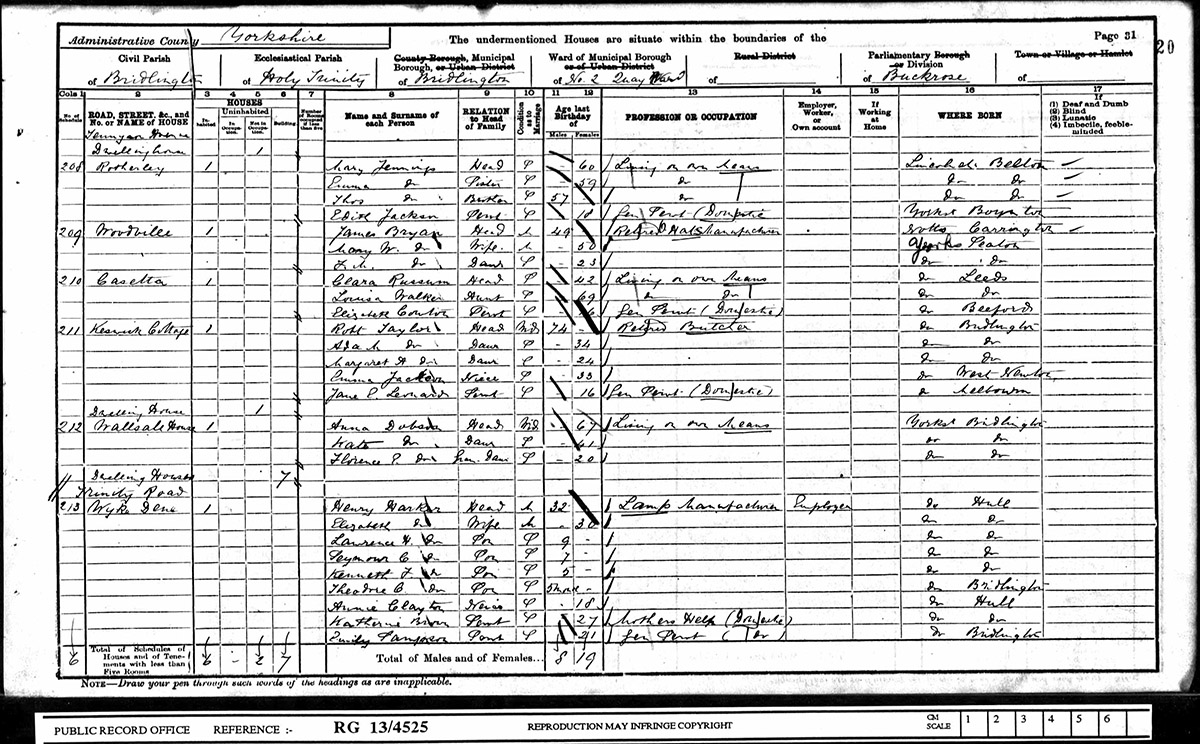 Administrative County Yorkshire The undermentioned Houses are situate within the boundaries of the Page 31
20
Civil Parish Ecclesiastical Parish County Borough, Municipal Borough, or Urban District Ward of Municipal Borough or of Urban District Rural District Parliamentary Borough or Division Town or Village or Hamlet
of Bridlington of Holy Trinity of Bridlington of No. 2 Quay Ward of of Buckrose of
Cols 1 2 3 4 5 6 7 8 9 10 11 12 13 14 15 16 17
No. of Schedule ROAD, STREET, &c., and No. or NAME of HOUSE HOUSES Inhabited Uninhabited In Occupation Not in Occupation Building Number of Rooms occupied if less than five Name and Surname of each Person RELATION to Head of Family Condition as to Marriage Age last Birthday of Males Females PROFESSION OR OCCUPATION Employer, Worker, or Own account If Working at Home WHERE BORN If (1) Deaf and Dumb (2) Blind (3) Lunatic (4) Imbecile, feeble-minded
Tennyson Avenue
Dwelling house 1
208 Rotherley 1 Mary Jennings Head S - 60 Living on own Means Lincolnsh. Belton
Emma do Sister S - 59 do do do
Thos do Brother S 57 - do do do
Edith Jackson Servt S - 18 Gen Servt (Domestic) Yorksh Boynton
209 Woodville 1 James Bryan Head M 49 - Retired Hats Manufacturer Notts Carrington
Mary W. do Wife M - 50 Yorks Seaton
do Daur S - 23 do do
210 Casetta 1 Clara Russum Head S - 42 Living on own Means do Leeds
Louisa Walker Aunt S - 69 do do do do
Elizabeth Servt S Gen Servt (Domestic) do Beeford
211 Keswick Cottage 1 Robt Taylor Head Wd 74 - Retired Butcher do Bridlington
Ada A do Daur S - 34 do do
Margaret A do Daur S - 24 do do
Emma Jackson Niece S - 33 do West Newton
Jane E. Leonard Servt S 16 Gen Servt (Domestic) do Melbourn
Dwelling House 1
212 Wallsale House 1 Anna Dobson Head Wd - 67 Living on own Means Yorksh Bridlington
Kate do Daur S - 41 do do
Florence P. do Gran. Daur S - 20 do do
Dwelling Houses 7
Trinity Road
213 Wyke Dene 1 Henry Harker Head M 32 Lamp Manufacturer Employer do Hull
Elizabeth do Wife M - 30 do do
Lawrence H. do Son S 9 - do do
Seymour C do Son S 7 - do do
Kenneth F do Son S 5 - do do
Theodore C. do Son S 5 mos - do Bridlington
Annie Clayton Neice S - 18 do Hull
Katherine Brown Servt S - 27 Mothers Help (Domestic) do do
Emily Sampson Servt S 21 Gen Servt ( do ) do Bridlington
6 Total of Schedules of Houses and of Tenements with less than Five Rooms 6 - 2 7 Total of Males and of Females... 8 19
NOTE—Draw your pen through such words of the headings as are inapplicable.
PUBLIC RECORD OFFICE REFERENCE :- RG 13/4525 REPRODUCTION MAY INFRINGE COPYRIGHT CM SCALE 1 2 3 4 5 6